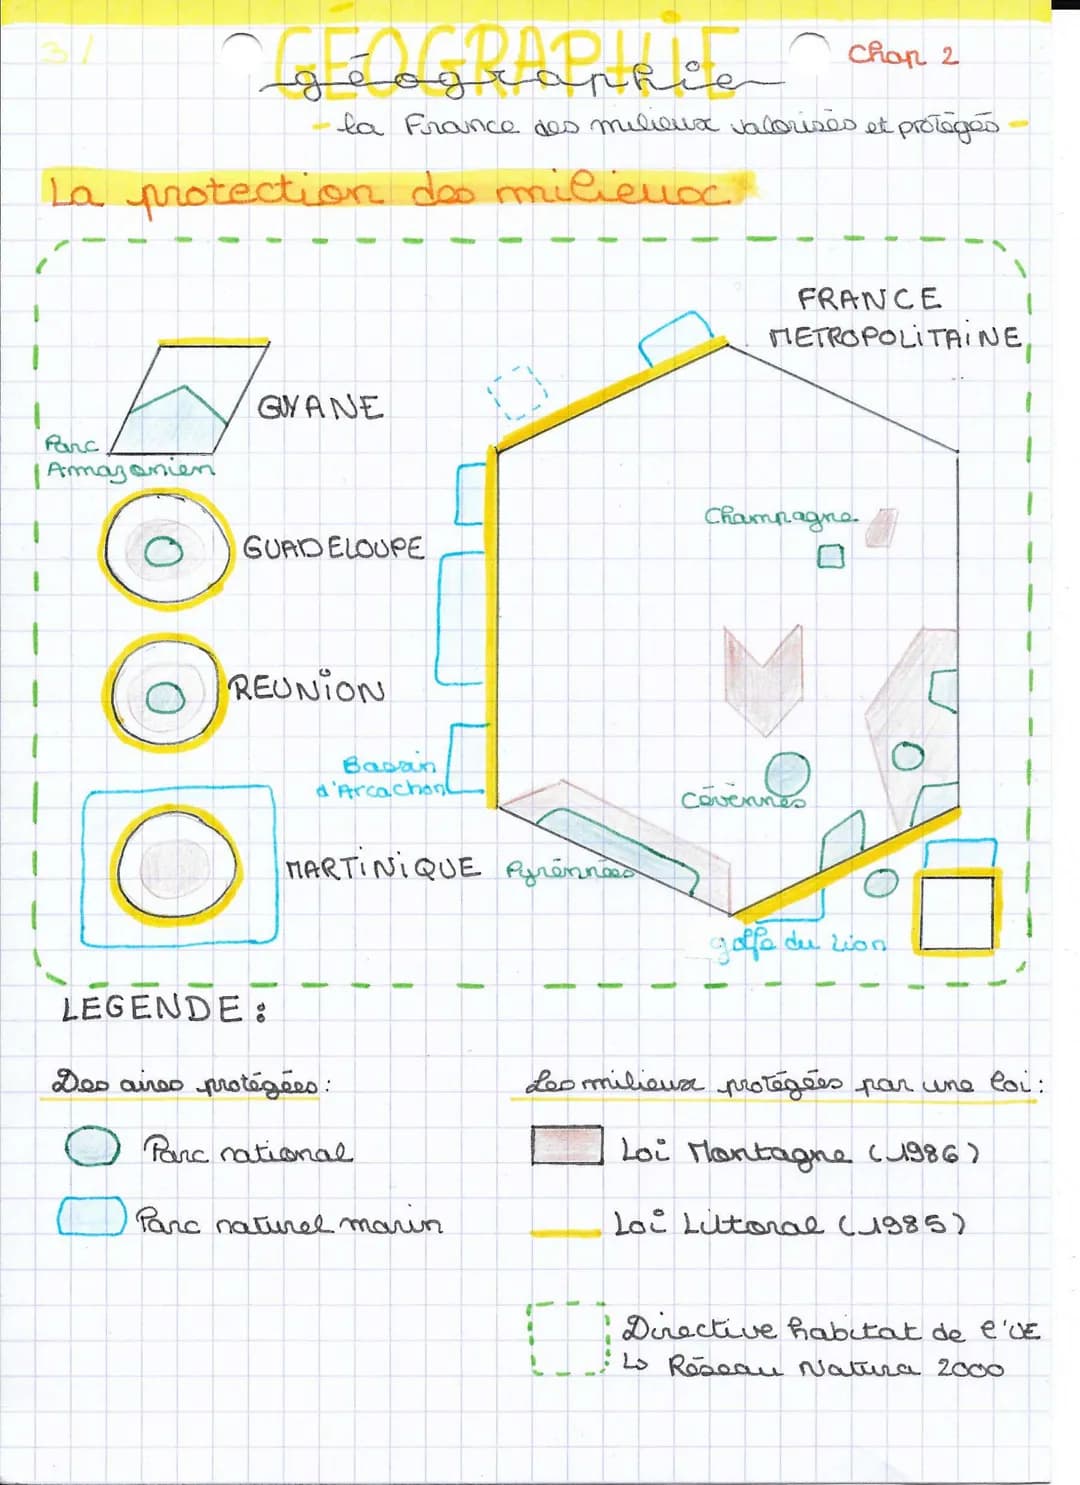 3/
GÉOGRAPHIE
géographie
Chap 2
- la France des milieux valorisés et protégés -
La protection des milieux
FRANCE
METROPOLITAINE
GUYANE
Parc
Amazonien
Champagne
GUADELOUPE
REUNION
Bassin
d'Arcachon
Cévennes
MARTINIQUE
Pyrénnées
golfe du Lion
LEGENDE :
Des aires protégées :
Les milieux protégées par une loi :
Parc national
Loi Montagne (1986)
Parc naturel marin
Loi Littoral (1985)
Directive habitat de l'UE
↳ Réseau Natura 2000